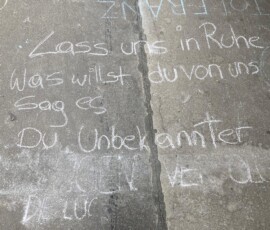 FRANZ
Lass uns in Ruhe
Was willst du von uns
Sag es
Du Unbekannter